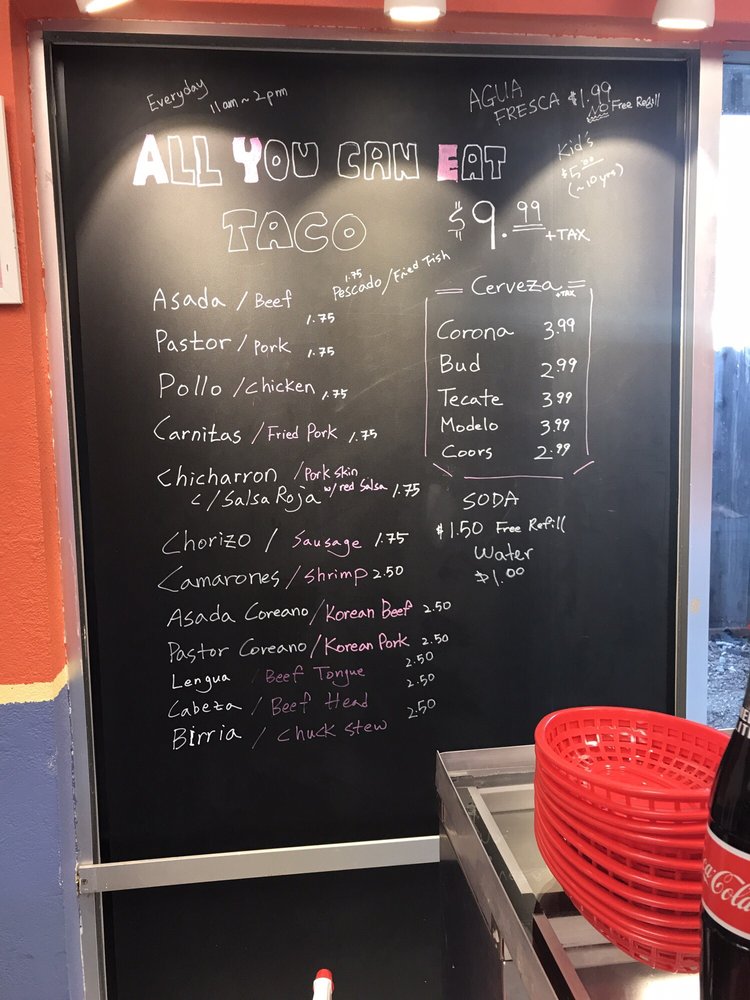 Everyday
11am ~ 2pm
AGUA
FRESCA $1.99
NO Free Refill
ALL YOU CAN EAT
Kid's
$5.00
(~10 yrs)
TACO
$9.99 +TAX
1.75
Pescado/Fried Fish
Asada / Beef 1.75
Pastor / Pork 1.75
Pollo / Chicken 1.75
Carnitas / Fried Pork 1.75
Chicharron / Pork skin
c/Salsa Roja w/red Salsa 1.75
Chorizo / Sausage 1.75
Camarones / Shrimp 2.50
Asada Coreano / Korean Beef 2.50
Pastor Coreano / Korean Pork 2.50
Lengua / Beef Tongue 2.50
Cabeza / Beef Head 2.50
Birria / Chuck stew 2.50
= Cerveza =
+TAX
Corona 3.99
Bud 2.99
Tecate 3.99
Modelo 3.99
Coors 2.99
SODA
$1.50 Free Refill
Water
$1.00
Coca-Cola